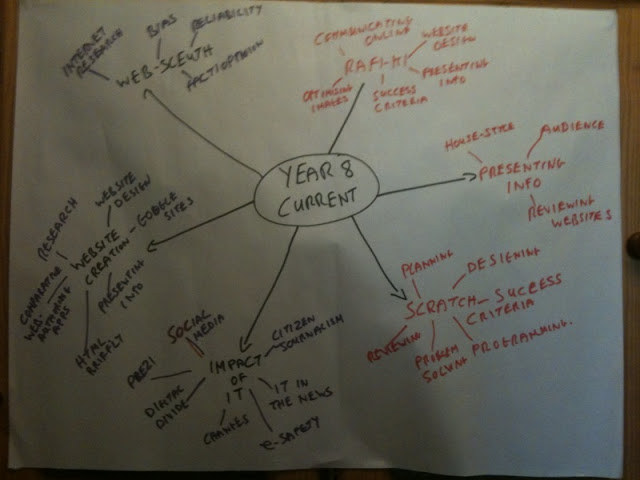 YEAR 8
CURRENT
WEB-SLEUTH
INTERNET
RESEARCH
BIAS
RELIABILITY
FACT/OPINION
RAFI-KI
COMMUNICATING
ONLINE
WEBSITE
DESIGN
PRESENTING
INFO
SUCCESS
CRITERIA
OPTIMISING
IMAGES
PRESENTING
INFO
HOUSE-STYLE
AUDIENCE
REVIEWING
WEBSITES
SCRATCH
PLANNING
DESIGNING
SUCCESS
CRITERIA
PROGRAMMING.
PROBLEM
SOLVING
REVIEWING
IMPACT
OF
IT
SOCIAL
MEDIA
CITIZEN
JOURNALISM
IT IN
THE NEWS
e-SAFETY
CHANGES
DIGITAL
DIVIDE
PREZI
WEBSITE
CREATION
RESEARCH
WEBSITE
DESIGN
GOOGLE
SITES
PRESENTING
INFO
HTML
COMPARATIVE
WEB-
AUTHORING
APPS